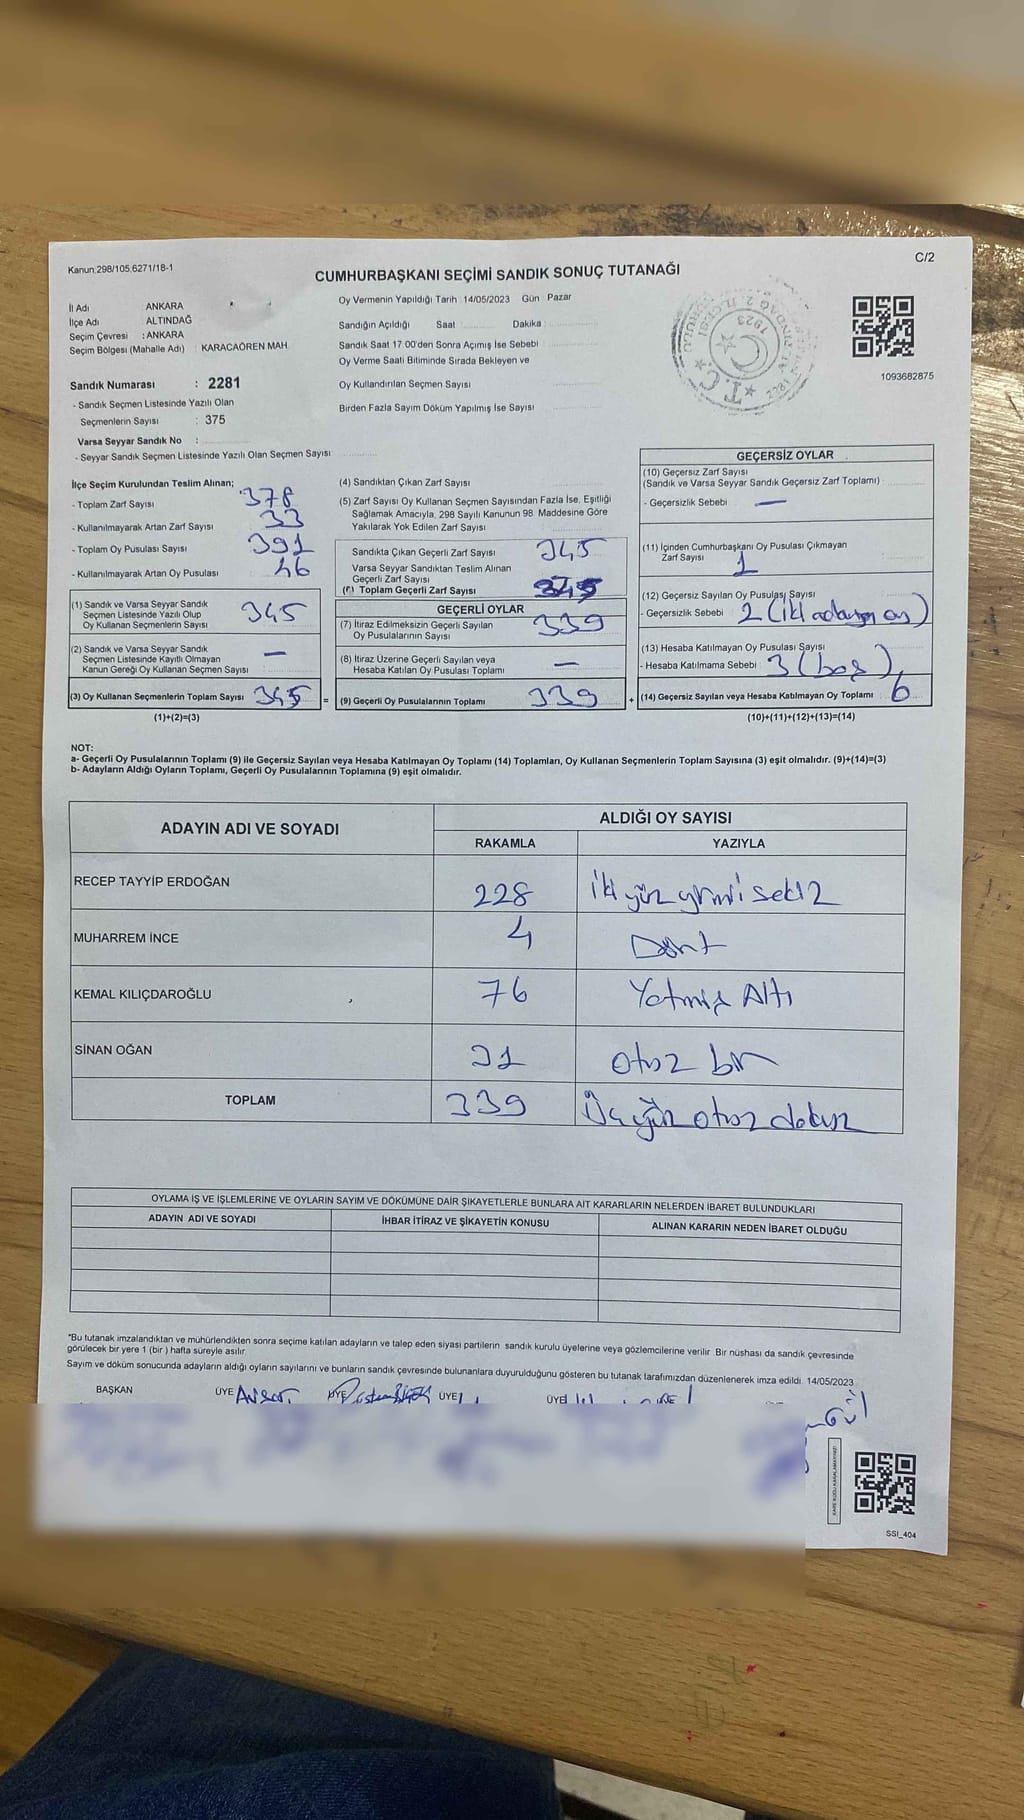 Kanun:298/105,6271/18-1
C/2
CUMHURBAŞKANI SEÇİMİ SANDIK SONUÇ TUTANAĞI
İl Adı ANKARA
İlçe Adı ALTINDAĞ
Seçim Çevresi : ANKARA
Seçim Bölgesi (Mahalle Adı) : KARACAÖREN MAH.
Sandık Numarası : 2281
- Sandık Seçmen Listesinde Yazılı Olan
Seçmenlerin Sayısı : 375
Varsa Seyyar Sandık No :
- Seyyar Sandık Seçmen Listesinde Yazılı Olan Seçmen Sayısı
Oy Vermenin Yapıldığı Tarih 14/05/2023 Gün Pazar
Sandığın Açıldığı Saat Dakika :
Sandık Saat 17:00'den Sonra Açımış İse Sebebi
Oy Verme Saati Bitiminde Sırada Bekleyen ve
Oy Kullandırılan Seçmen Sayısı
Birden Fazla Sayım Döküm Yapılmış İse Sayısı
1093682875
İlçe Seçim Kurulundan Teslim Alınan;
- Toplam Zarf Sayısı 378
- Kullanılmayarak Artan Zarf Sayısı 33
- Toplam Oy Pusulası Sayısı 391
- Kullanılmayarak Artan Oy Pusulası 46
(1) Sandık ve Varsa Seyyar Sandık
Seçmen Listesinde Yazılı Olup
Oy Kullanan Seçmenlerin Sayısı 345
(2) Sandık ve Varsa Seyyar Sandık
Seçmen Listesinde Kayıtlı Olmayan
Kanun Gereği Oy Kullanan Seçmen Sayısı —
(3) Oy Kullanan Seçmenlerin Toplam Sayısı 345 =
(1)+(2)=(3)
(4) Sandıktan Çıkan Zarf Sayısı
(5) Zarf Sayısı Oy Kullanan Seçmen Sayısından Fazla İse, Eşitliği
Sağlamak Amacıyla, 298 Sayılı Kanunun 98. Maddesine Göre
Yakılarak Yok Edilen Zarf Sayısı
Sandıkta Çıkan Geçerli Zarf Sayısı 345
Varsa Seyyar Sandıktan Teslim Alınan
Geçerli Zarf Sayısı
(6) Toplam Geçerli Zarf Sayısı 345
GEÇERLİ OYLAR
(7) İtiraz Edilmeksizin Geçerli Sayılan
Oy Pusulalarının Sayısı 339
(8) İtiraz Üzerine Geçerli Sayılan veya
Hesaba Katılan Oy Pusulası Toplamı —
(9) Geçerli Oy Pusulalarının Toplamı 339 +
GEÇERSİZ OYLAR
(10) Geçersiz Zarf Sayısı
(Sandık ve Varsa Seyyar Sandık Geçersiz Zarf Toplamı)
- Geçersizlik Sebebi —
(11) İçinden Cumhurbaşkanı Oy Pusulası Çıkmayan
Zarf Sayısı 1
(12) Geçersiz Sayılan Oy Pusulası Sayısı
- Geçersizlik Sebebi 2 (iki adaya oy)
(13) Hesaba Katılmayan Oy Pusulası Sayısı
- Hesaba Katılmama Sebebi 3 (boş)
(14) Geçersiz Sayılan veya Hesaba Katılmayan Oy Toplamı : 6
(10)+(11)+(12)+(13)=(14)
NOT:
a- Geçerli Oy Pusulalarının Toplamı (9) ile Geçersiz Sayılan veya Hesaba Katılmayan Oy Toplamı (14) Toplamları, Oy Kullanan Seçmenlerin Toplam Sayısına (3) eşit olmalıdır. (9)+(14)=(3)
b- Adayların Aldığı Oyların Toplamı, Geçerli Oy Pusulalarının Toplamına (9) eşit olmalıdır.
ADAYIN ADI VE SOYADI ALDIĞI OY SAYISI
RAKAMLA YAZIYLA
RECEP TAYYİP ERDOĞAN 228 iki yüz yirmi sekiz
MUHARREM İNCE 4 Dört
KEMAL KILIÇDAROĞLU 76 Yetmiş Altı
SİNAN OĞAN 31 otuz bir
TOPLAM 339 Üç yüz otuz dokuz
OYLAMA İŞ VE İŞLEMLERİNE VE OYLARIN SAYIM VE DÖKÜMÜNE DAİR ŞİKAYETLERLE BUNLARA AİT KARARLARIN NELERDEN İBARET BULUNDUKLARI
ADAYIN ADI VE SOYADI İHBAR İTİRAZ VE ŞİKAYETİN KONUSU ALINAN KARARIN NEDEN İBARET OLDUĞU
*Bu tutanak imzalandıktan ve mühürlendikten sonra seçime katılan adayların ve talep eden siyasi partilerin sandık kurulu üyelerine veya gözlemcilerine verilir. Bir nüshası da sandık çevresinde
görülecek bir yere 1 (bir) hafta süreyle asılır.
Sayım ve döküm sonucunda adayların aldığı oyların sayılarını ve bunların sandık çevresinde bulunanlara duyurulduğunu gösteren bu tutanak tarafımızdan düzenlenerek imza edildi. 14/05/2023
BAŞKAN ÜYE ÜYE ÜYE ÜYE
SSİ_404